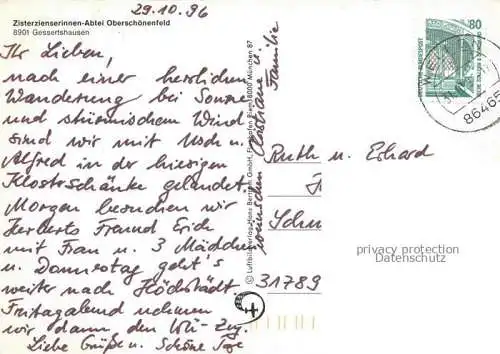 29.10.96
Zisterzienserinnen-Abtei Oberschönenfeld
8901 Gessertshausen
Ihr Lieben,
nach einer herrlichen
Wanderung bei Sonne
und stürmischem Wind
sind wir mit Usch u.
Alfred in der hiesigen
Klosterschänke gelandet.
Morgen besuchen wir
Herberts Freund Erich
mit Frau u. 3 Mädchen
u. Donnerstag geht's
weiter nach Höchstädt.
Freitagabend nehmen
wir dann den Zug.
Liebe Grüße u. Schöne Tage
wünschen Christiane u.
Familie
© Luftbildverlag Hans Bertram GmbH, Flughafen Riem, 8000 München 87
80
DEUTSCHE BUNDESPOST
86465
Ruth u. Erhard
31789
privacy protection
Datenschutz